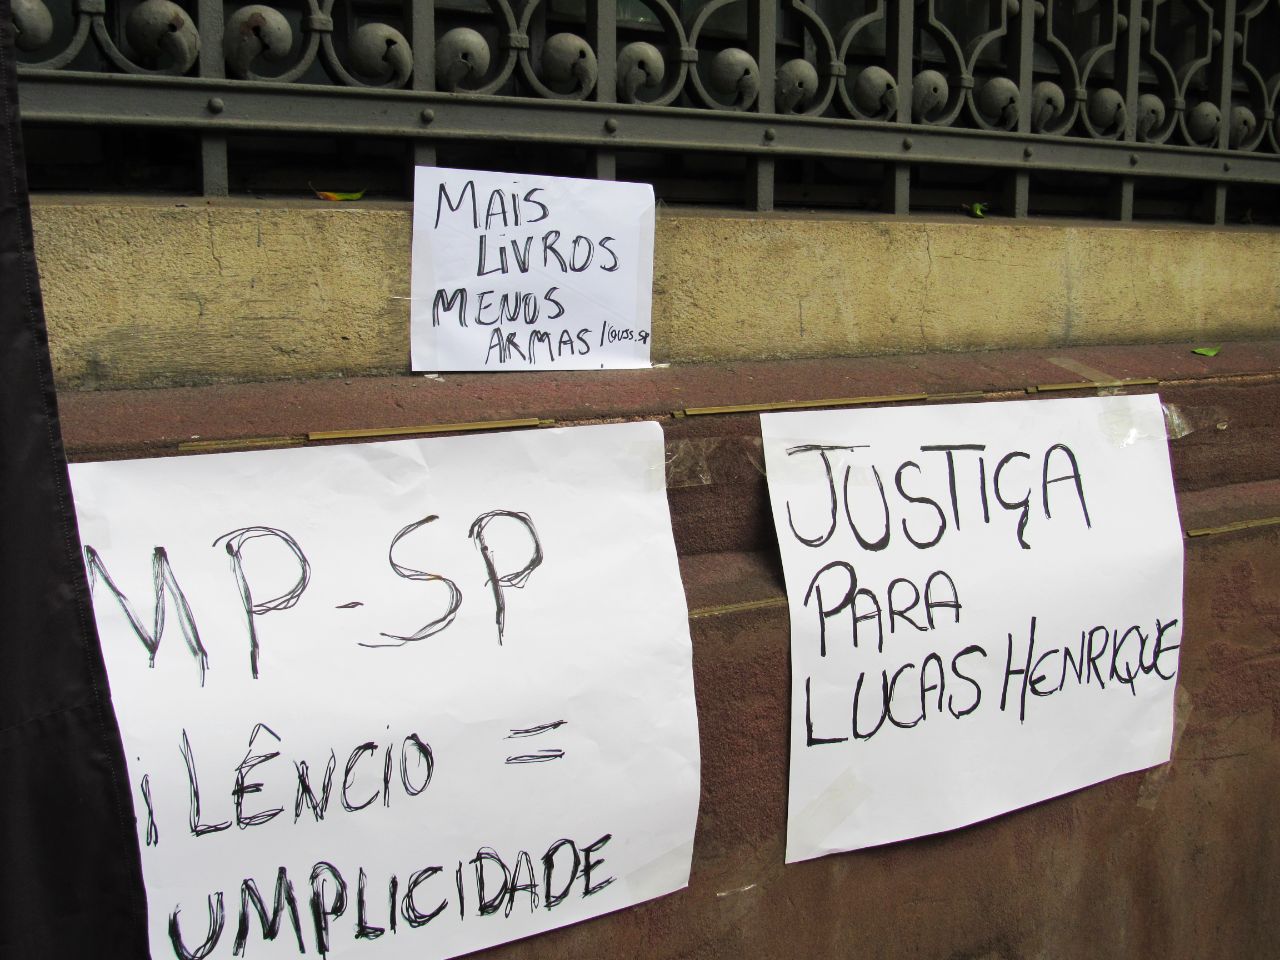 MAIS
LIVROS
MENOS
ARMAS /@USS.SP
MP-SP
iLÊNCIO =
UMPLICIDADE
JUSTIÇA
PARA
LUCAS HENRIQUE